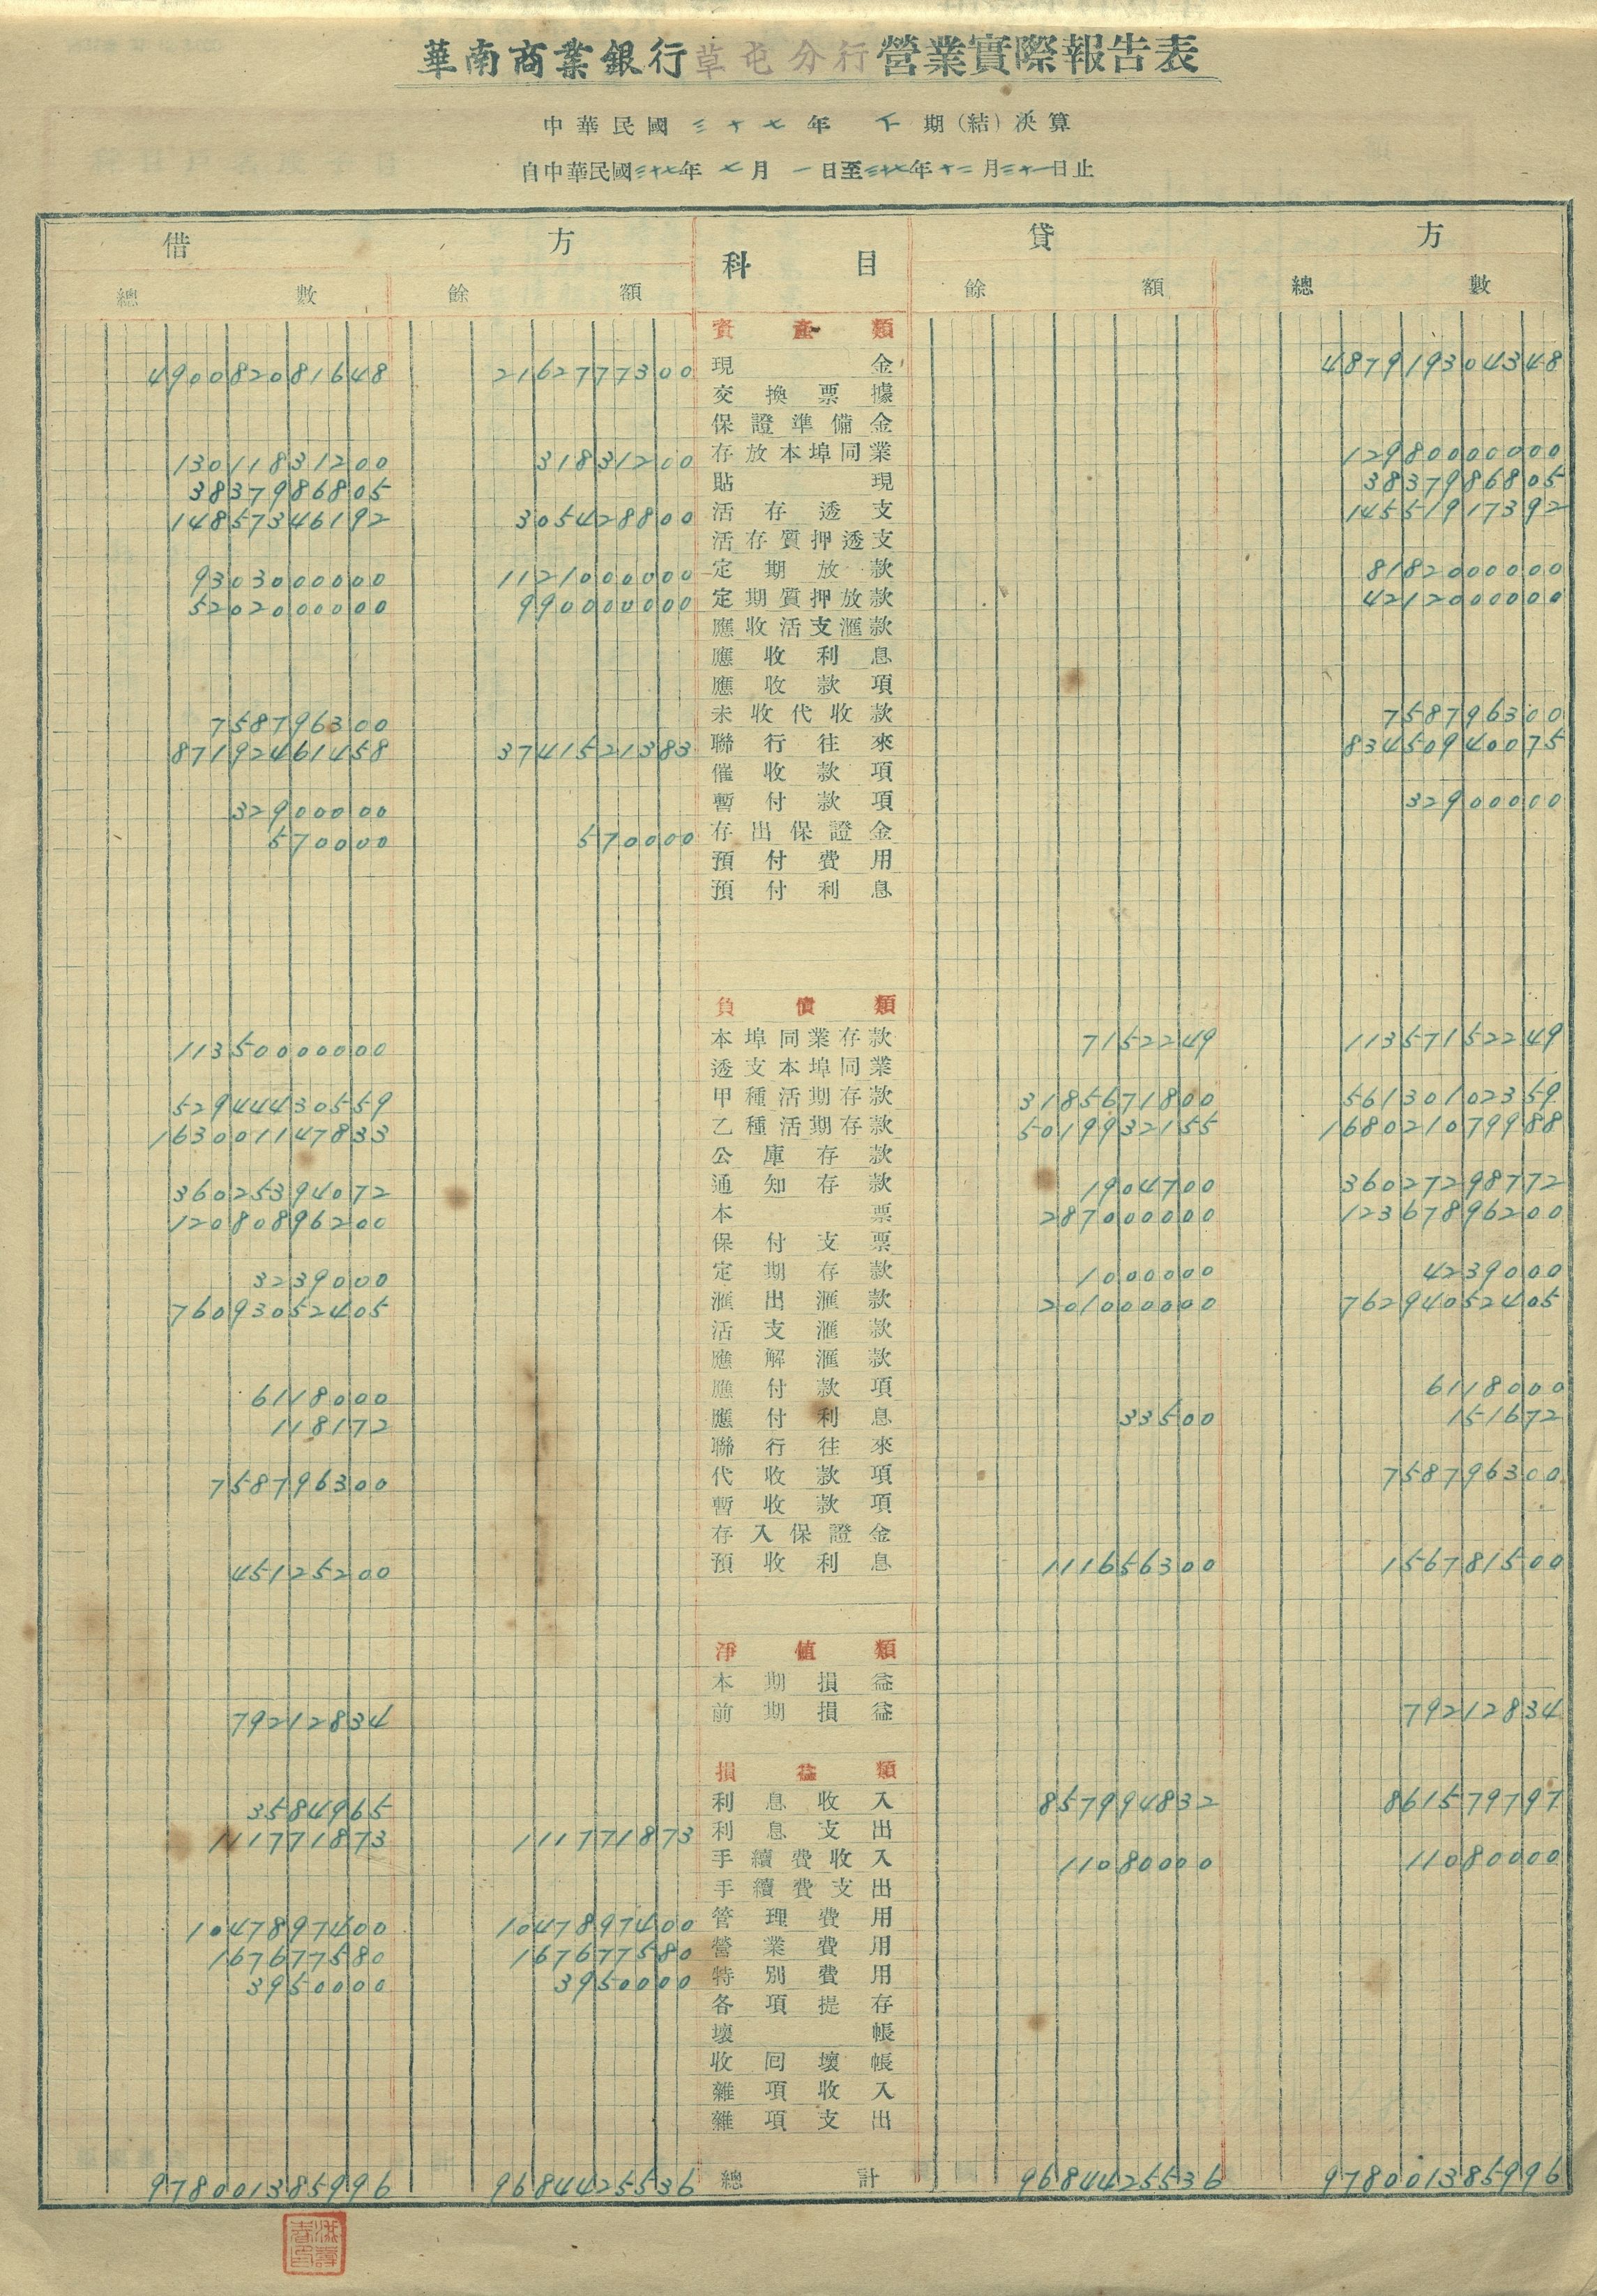 華南商業銀行草屯分行營業實際報告表
中華民國三十七年 下期(結)決算
自中華民國三十七年七月一日至三十七年十二月三十一日止
借 方 科目 貸 方
總數 餘額 餘額 總數
資產類
490082081648 2162777300 現金 487919304348
交換票據
保證準備金
13011831200 31831200 存放本埠同業 12980000000
3837986805 貼現 3837986805
14857346192 305428800 活存透支 14551917392
活存質押透支
9303000000 1121000000 定期放款 8182000000
5202000000 990000000 定期質押放款 4212000000
應收活支滙款
應收利息
應收款項
758796300 未收代收款 758796300
87192461458 3741521383 聯行往來 83450940075
催收款項
32900000 暫付款項 32900000
570000 570000 存出保證金
預付費用
預付利息
負債類
11350000000 本埠同業存款 7152249 11357152249
透支本埠同業
52944430559 甲種活期存款 3185671800 56130102359
163001147833 乙種活期存款 5019932155 168021079988
公庫存款
36025394072 通知存款 1904700 36027298772
12080896200 本票 287000000 12367896200
保付支票
3239000 定期存款 1000000 4239000
76093052405 滙出滙款 201000000 76294052405
活支滙款
應解滙款
6118000 應付款項 6118000
118172 應付利息 33500 151672
聯行往來
758796300 代收款項 758796300
暫收款項
存入保證金
45125200 預收利息 111656300 156781500
淨值類
本期損益
79212834 前期損益 79212834
損益類
3584965 利息收入 857994832 861579797
111771873 111771873 利息支出
手續費收入 11080000 11080000
手續費支出
1047897400 1047897400 管理費用
167677580 167677580 營業費用
3950000 3950000 特別費用
各項提存
壞帳
收回壞帳
雜項收入
雜項支出
978001385996 9684425536 總計 9684425536 978001385996